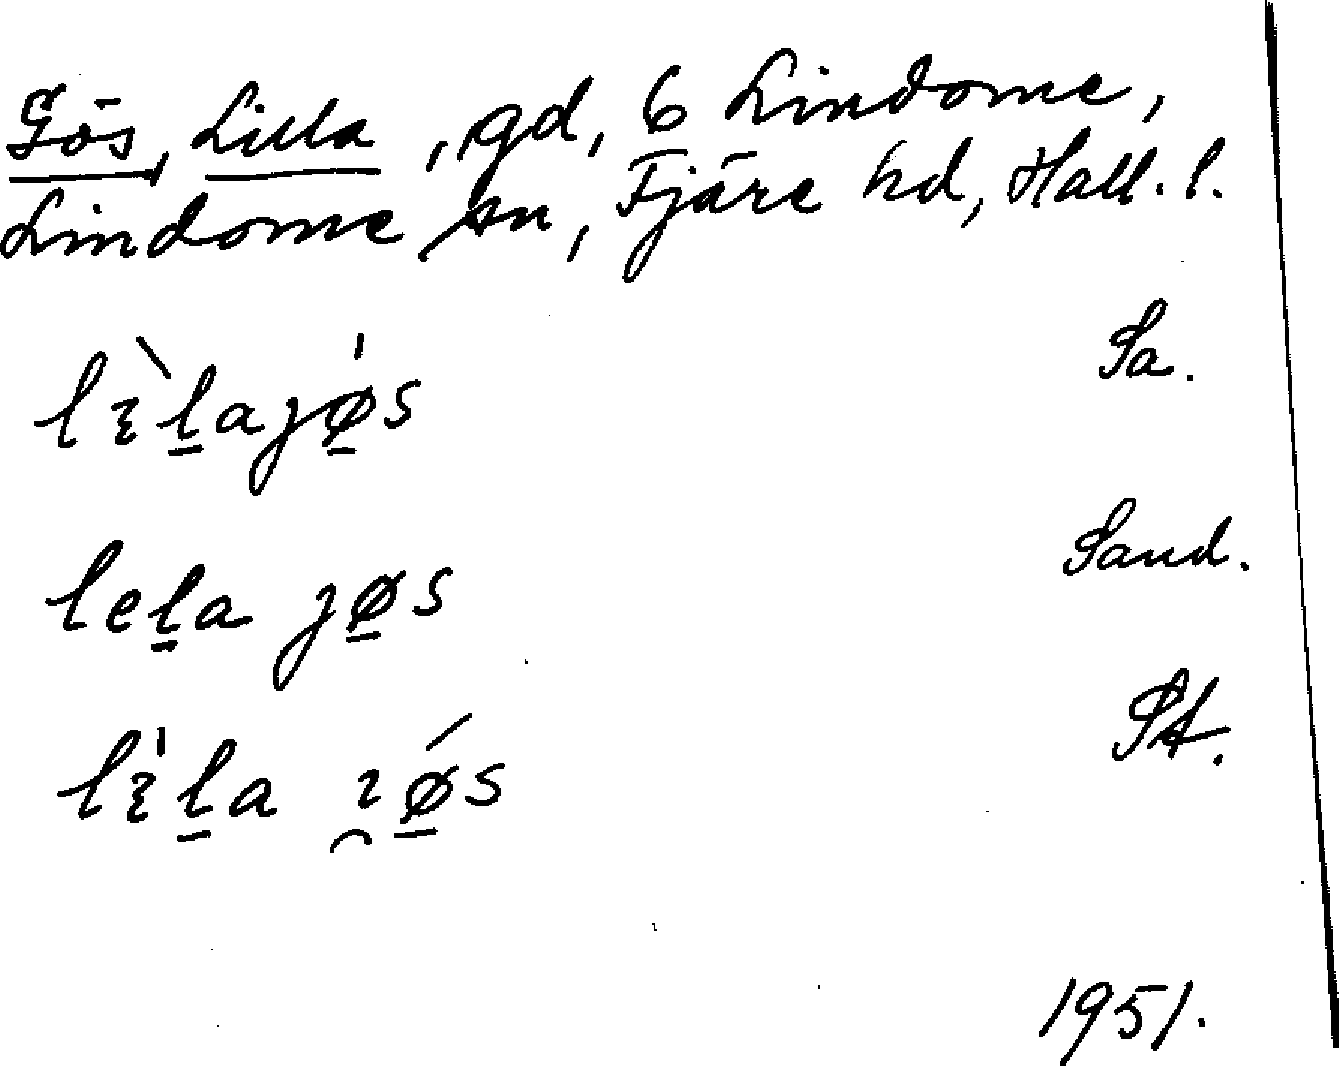 Gös, Lilla, gd, 6 Lindome,
Lindome sn, Fjäre hd, Hall. l.
lɪ̀l̠ajø̠̍s Sa.
lel̠a jø̠s Sand.
lɪ̍l̠a ɪ̯ǿ̠s St.
1951.